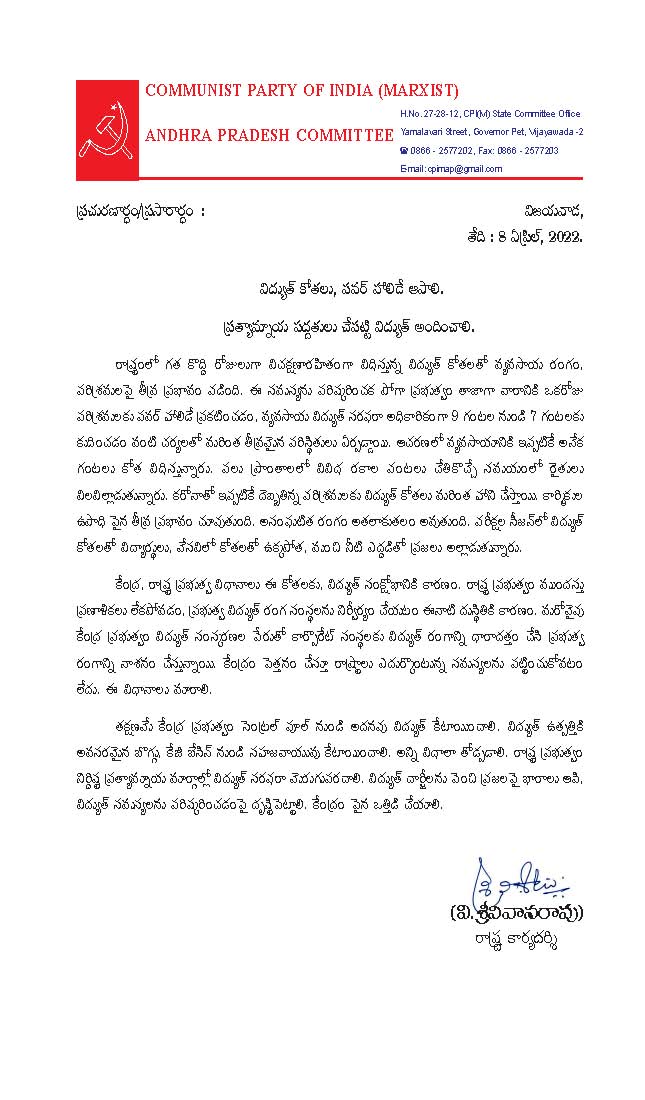 COMMUNIST PARTY OF INDIA (MARXIST)
ANDHRA PRADESH COMMITTEE
H.No. 27-28-12, CPI(M) State Committee Office
Yamalavari Street, Governor Pet, Vijayawada -2
☎ 0866 - 2577202, Fax: 0866 - 2577203
Email: cpimap@gmail.com
ప్రచురణార్థం/ప్రసారార్థం :
విజయవాడ,
తేది : 8 ఏప్రిల్, 2022.
విద్యుత్ కోతలు, పవర్ హాలిడే ఆపాలి.
ప్రత్యామ్నాయ పద్దతులు చేపట్టి విద్యుత్ అందించాలి.
రాష్ట్రంలో గత కొద్ది రోజులుగా విచక్షణారహితంగా విధిస్తున్న విద్యుత్ కోతలతో వ్యవసాయ రంగం,
పరిశ్రమలపై తీవ్ర ప్రభావం పడింది. ఈ సమస్యను పరిష్కరించక పోగా ప్రభుత్వం తాజాగా వారానికి ఒకరోజు
పరిశ్రమలకు పవర్ హాలిడే ప్రకటించడం, వ్యవసాయ విద్యుత్ సరఫరా అధికారికంగా 9 గంటల నుండి 7 గంటలకు
కుదించడం వంటి చర్యలతో మరింత తీవ్రమైన పరిస్థితులు ఏర్పడ్డాయి. ఆచరణలో వ్యవసాయానికి ఇప్పటికే అనేక
గంటలు కోత విధిస్తున్నారు. పలు ప్రాంతాలలో వివిధ రకాల పంటలు చేతికొచ్చే సమయంలో రైతులు
విలవిల్లాడుతున్నారు. కరోనాతో ఇప్పటికే దెబ్బతిన్న పరిశ్రమలకు విద్యుత్ కోతలు మరింత హాని చేస్తాయి. కార్మికుల
ఉపాధి పైన తీవ్ర ప్రభావం చూపుతుంది. అసంఘటిత రంగం అతలాకుతలం అవుతుంది. పరీక్షల సీజన్‌లో విద్యుత్
కోతలతో విద్యార్థులు, వేసవిలో కోతలతో ఉక్కపోత, మంచి నీటి ఎద్దడితో ప్రజలు అల్లాడుతున్నారు.
కేంద్ర, రాష్ట్ర ప్రభుత్వ విధానాలు ఈ కోతలకు, విద్యుత్ సంక్షోభానికి కారణం. రాష్ట్ర ప్రభుత్వం ముందస్తు
ప్రణాళికలు లేకపోవడం, ప్రభుత్వ విద్యుత్ రంగ సంస్థలను నిర్వీర్యం చేయటం ఈనాటి దుస్థితికి కారణం. మరోవైపు
కేంద్ర ప్రభుత్వం విద్యుత్ సంస్కరణల పేరుతో కార్పొరేట్ సంస్థలకు విద్యుత్ రంగాన్ని ధారాదత్తం చేసి ప్రభుత్వ
రంగాన్ని నాశనం చేస్తున్నాయి. కేంద్రం పెత్తనం చేస్తూ రాష్ట్రాలు ఎదుర్కొంటున్న సమస్యలను పట్టించుకోవటం
లేదు. ఈ విధానాలు మారాలి.
తక్షణమే కేంద్ర ప్రభుత్వం సెంట్రల్ పూల్ నుండి అదనపు విద్యుత్ కేటాయించాలి. విద్యుత్ ఉత్పత్తికి
అవసరమైన బొగ్గు, కేజి బేసిన్ నుండి సహజవాయువు కేటాయించాలి. అన్ని విధాలా తోడ్పడాలి. రాష్ట్ర ప్రభుత్వం
నిర్దిష్ట ప్రత్యామ్నాయ మార్గాల్లో విద్యుత్ సరఫరా మెరుగుపరచాలి. విద్యుత్ చార్జీలను పెంచి ప్రజలపై భారాలు ఆపి,
విద్యుత్ సమస్యలను పరిష్కరించడంపై దృష్టిపెట్టాలి. కేంద్రం పైన ఒత్తిడి చేయాలి.
(వి.శ్రీనివాసరావు)
రాష్ట్ర కార్యదర్శి